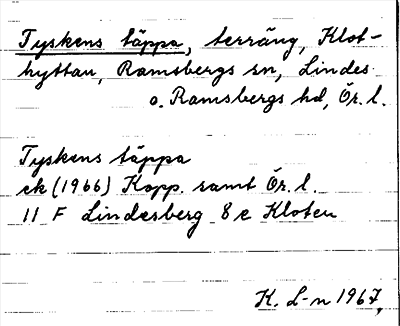 Tyskens täppa, terräng, Klot-
hyttan, Ramsbergs sn, Lindes
o. Ramsbergs hd, Ör. l.
Tyskens täppa
ek (1966) Kopp. samt Ör. l.
11 F Lindesberg 8 e Kloten
K. L-n 1967,